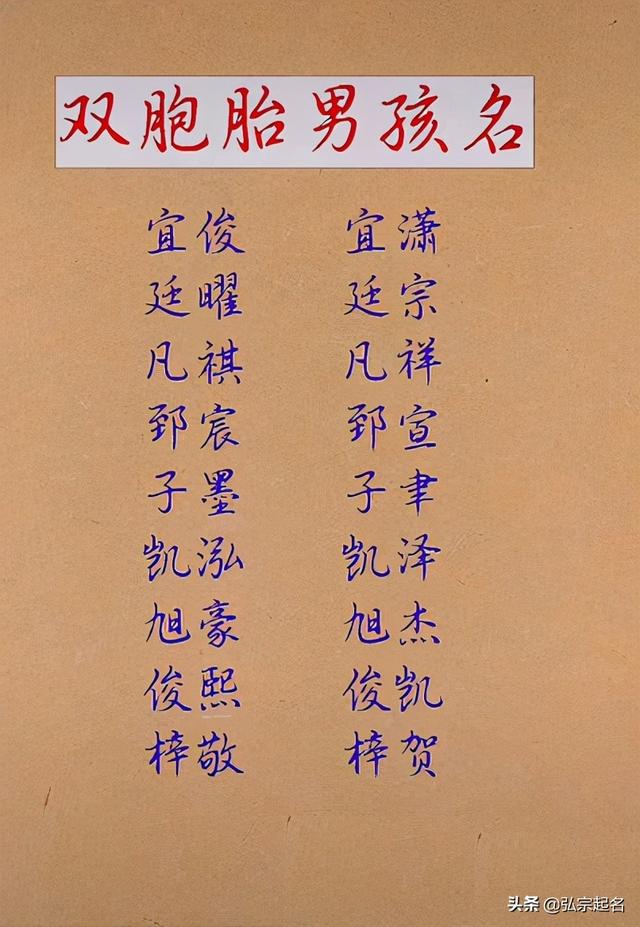 双胞胎男孩名
宜俊 宜潇
廷曜 廷宗
凡祺 凡祥
郅宸 郅宣
子墨 子聿
凯泓 凯泽
旭豪 旭杰
俊熙 俊凯
梓敬 梓贺
头条 @弘宗起名